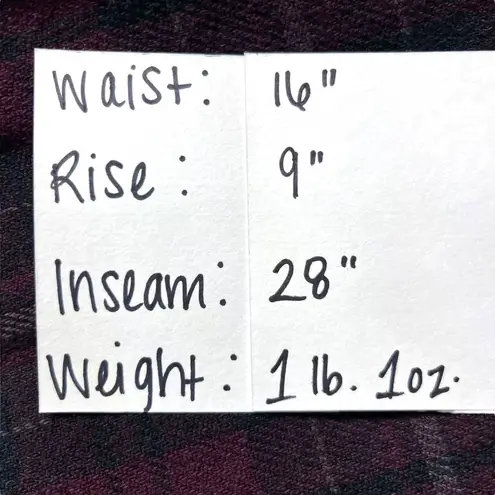 Waist: 16"
Rise: 9"
Inseam: 28"
Weight: 1 lb. 1oz.